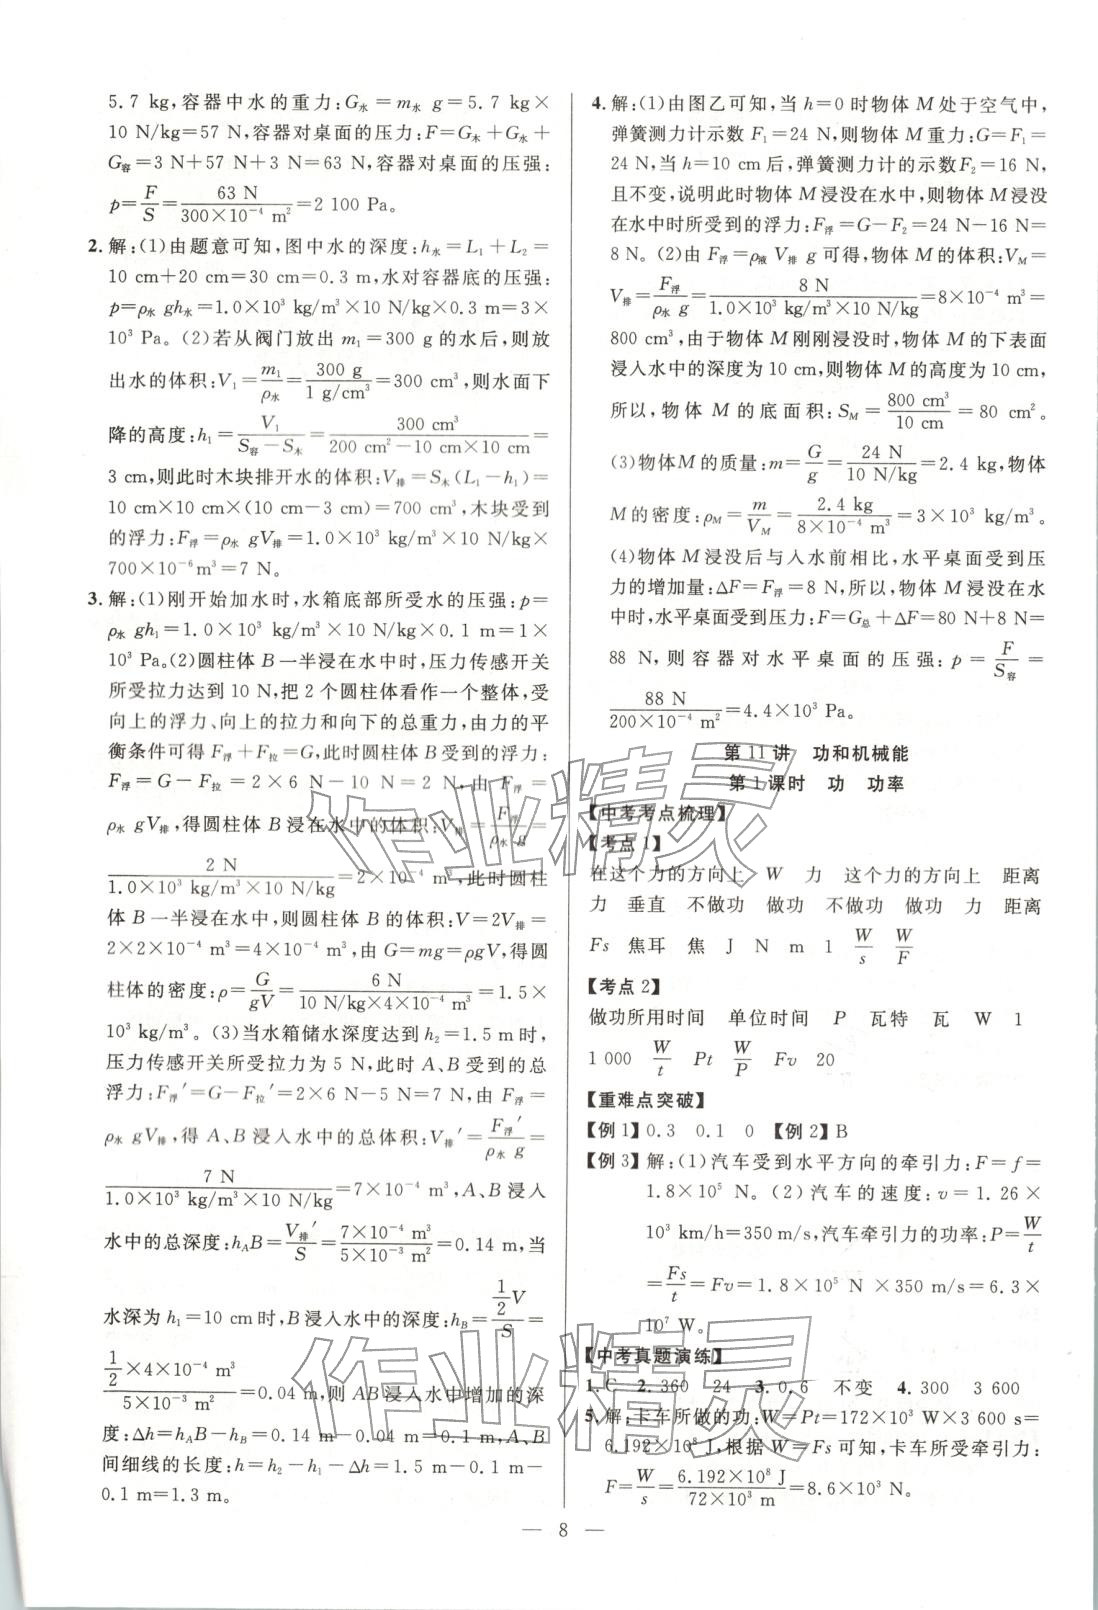 5.7 kg,容器中水的重力:G水=m水 g=5.7 kg×
10 N/kg=57 N,容器对桌面的压力:F=G木+G水+
G容=3 N+57 N+3 N=63 N,容器对桌面的压强:
p=F/S=63 N/(300×10⁻⁴ m²)=2 100 Pa。
2. 解:(1)由题意可知,图中水的深度:h水=L₁+L₂=
10 cm+20 cm=30 cm=0.3 m,水对容器底的压强:
p=ρ水 gh水=1.0×10³ kg/m³×10 N/kg×0.3 m=3×
10³ Pa。(2)若从阀门放出 m₁=300 g的水后,则放
出水的体积:V₁=m₁/ρ水=300 g/(1 g/cm³)=300 cm³,则水面下
降的高度:h₁=V₁/(S容-S木)=300 cm³/(200 cm²-10 cm×10 cm)=
3 cm,则此时木块排开水的体积:V排=S木(L₁-h₁)=
10 cm×10 cm×(10 cm-3 cm)=700 cm³,木块受到
的浮力:F浮=ρ水 gV排=1.0×10³ kg/m³×10 N/kg×
700×10⁻⁶m³=7 N。
3. 解:(1)刚开始加水时,水箱底部所受水的压强:p=
ρ水 gh₁=1.0×10³ kg/m³×10 N/kg×0.1 m=1×
10³ Pa。(2)圆柱体B一半浸在水中时,压力传感开关
所受拉力达到10 N,把2个圆柱体看作一个整体,受
向上的浮力、向上的拉力和向下的总重力,由力的平
衡条件可得F浮+F拉=G,此时圆柱体B受到的浮力:
F浮=G-F拉=2×6 N-10 N=2 N,由F浮=
ρ水 gV排,得圆柱体B浸在水中的体积:V排=F浮/(ρ水 g)=
2 N/(1.0×10³ kg/m³×10 N/kg)=2×10⁻⁴ m³,此时圆柱
体B一半浸在水中,则圆柱体B的体积:V=2V排=
2×2×10⁻⁴ m³=4×10⁻⁴ m³,由G=mg=ρgV,得圆
柱体的密度:ρ=G/(gV)=6 N/(10 N/kg×4×10⁻⁴ m³)=1.5×
10³ kg/m³。(3)当水箱储水深度达到h₂=1.5 m时,
压力传感开关所受拉力为5 N,此时A、B受到的总
浮力:F浮′=G-F拉′=2×6 N-5 N=7 N,由F浮=
ρ水 gV排,得A、B浸入水中的总体积:V排′=F浮′/(ρ水 g)=
7 N/(1.0×10³ kg/m³×10 N/kg)=7×10⁻⁴ m³,A、B浸入
水中的总深度:hAB=V排′/S=(7×10⁻⁴ m³)/(5×10⁻³ m²)=0.14 m,当
水深为h₁=10 cm时,B浸入水中的深度:hB=(1/2 V)/S=
(1/2×4×10⁻⁴ m³)/(5×10⁻³ m²)=0.04 m,则AB浸入水中增加的深
度:Δh=hAB-hB=0.14 m-0.04 m=0.1 m,A、B
间细线的长度:h=h₂-h₁-Δh=1.5 m-0.1 m-
0.1 m=1.3 m。
4. 解:(1)由图乙可知,当h=0时物体M处于空气中,
弹簧测力计示数F₁=24 N,则物体M重力:G=F₁=
24 N,当h=10 cm后,弹簧测力计的示数F₂=16 N,
且不变,说明此时物体M浸没在水中,则物体M浸没
在水中时所受到的浮力:F浮=G-F₂=24 N-16 N=
8 N。(2)由F浮=ρ液 V排 g可得,物体M的体积:VM=
V排=F浮/(ρ水 g)=8 N/(1.0×10³ kg/m³×10 N/kg)=8×10⁻⁴ m³=
800 cm³,由于物体M刚刚浸没时,物体M的下表面
浸入水中的深度为10 cm,则物体M的高度为10 cm,
所以,物体M的底面积:SM=800 cm³/10 cm=80 cm²。
(3)物体M的质量:m=G/g=24 N/(10 N/kg)=2.4 kg,物体
M的密度:ρM=m/VM=2.4 kg/(8×10⁻⁴ m³)=3×10³ kg/m³。
(4)物体M浸没后与入水前相比,水平桌面受到压
力的增加量:ΔF=F浮=8 N,所以,物体M浸没在水
中时,水平桌面受到压力:F=G总+ΔF=80 N+8 N=
88 N,则容器对水平桌面的压强:p=F/S容=
88 N/(200×10⁻⁴ m²)=4.4×10³ Pa。
第11讲 功和机械能
第1课时 功 功率
【中考考点梳理】
【考点1】
在这个力的方向上 W 力 这个力的方向上 距离
力 垂直 不做功 做功 不做功 做功 力 距离
Fs 焦耳 焦 J N m 1 W/s W/F
【考点2】
做功所用时间 单位时间 P 瓦特 瓦 W 1
1 000 W/t Pt W/P Fv 20
【重难点突破】
【例1】0.3 0.1 0 【例2】B
【例3】解:(1)汽车受到水平方向的牵引力:F=f=
1.8×10⁵ N。(2)汽车的速度:v=1.26×
10³ km/h=350 m/s,汽车牵引力的功率:P=W/t
=Fs/t=Fv=1.8×10⁵ N×350 m/s=6.3×
10⁷ W。
【中考真题演练】
1. C 2. 360 24 3. 0.6 不变 4. 300 3 600
5. 解:卡车所做的功:W=Pt=172×10³ W×3 600 s=
6.192×10⁸ J,根据W=Fs可知,卡车所受牵引力:
F=W/s=(6.192×10⁸ J)/(72×10³ m)=8.6×10³ N。
— 8 —
作业精灵
作业精灵